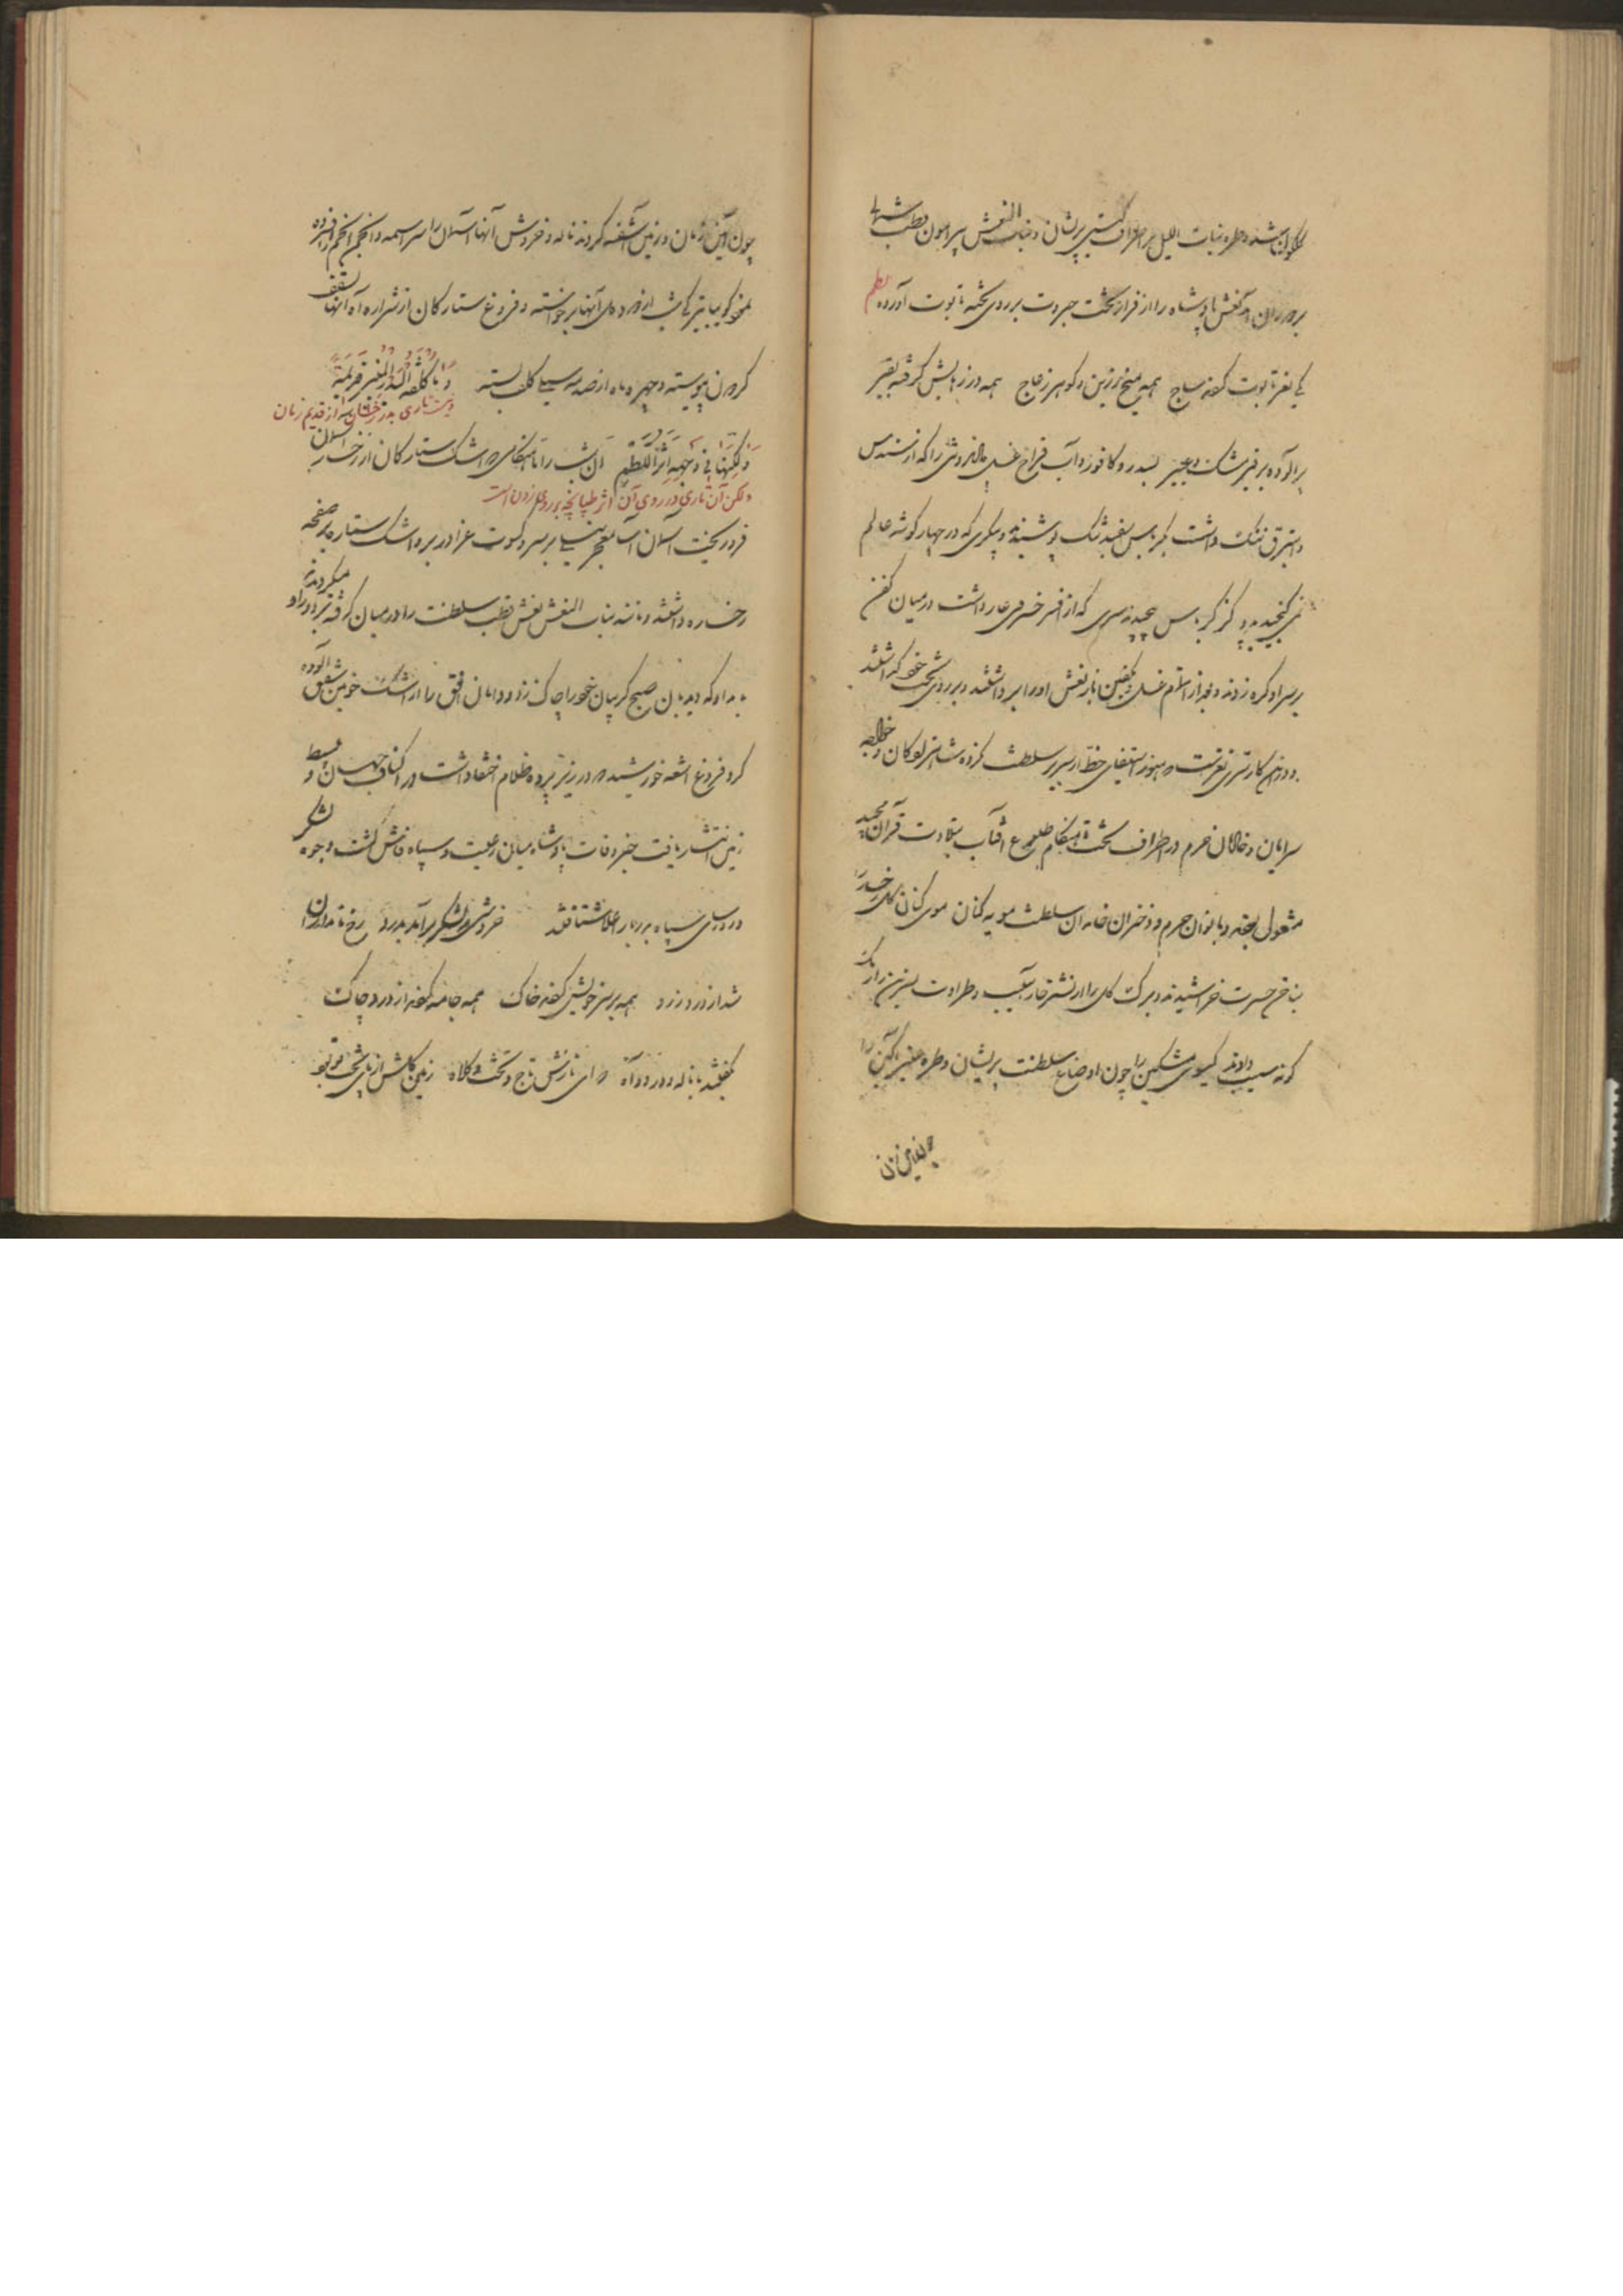 کیوان شد و طره بنات اللیل بر اطراف گیتی پریشان و بنات النعش پیرامون قطب شمالی
بدوران آمد نعش پادشاه را از فراز تخت جبروت بر روی تخته تابوت آورده نظم
یکی نغز تابوت کرده ساج همه میخ زرین و گوهر ز عاج همه درزهایش گرفته بقیر
برآلوده بر قیر مشک و عبیر بسدر و کافور و آب قراح غسل دادند و دوشی را که از سندس
و استبرق ننگ داشت بکرباس سفید تنک پوشیدند و پیکری که در چهار گوشه عالم
نمی گنجید بدو گز کرباس پیچیدند سری که از افسر خسروی عار داشت در میان کفن
بر سر او گره زدند و بعد از اتمام غسل و تکفین باز نعش او را برداشتند و بر روی تخت خود گذاشتند
و در این کار سری نغز است که هنوز استیفای حظ از سریر سلطنت نکرده است امرا و ارکان و خواجه
سرایان و خاصان حرم در اطراف تخت تا هنگام طلوع آفتاب بتلاوت قرآن مجید
مشغول بودند و بانوان حرم و دختران خاندان سلطنت مویه کنان موی کنان گل خد را
بناخن حسرت خراشیدند و برگ گل را از نشتر خار آسیب و طراوت نسرین را از
گونه سیب دادند گیسوی مشکین را چون اوضاع سلطنت پریشان و طره عنبر آگین را
چون آیین زمان و زمین آشفته کردند ناله و خروش آنها آسمان را سراسیمه و انجم انجم را افسرده
نمود گویا تیرگی شب از دود دل آنها برخاسته و فروغ ستارگان از شراره آه آنها بسقف
گردون پیوسته و چهره ماه از صدمه سیلی کلف بسته وَمَا كُلْفَةُ الْبَدْرِ الْمُنِيرِ قَدِيمَةً
و نیست تاری بدر رخشان از قدیم زمان
وَلٰكِنَّهَا فِي وَجْهِهِ أَثَرُ اللَّطْمِ آن شب را تا هنگامی که اشک ستارگان از رخسار آسمان
ولکن آن تاری در روی آن اثر طپانچه بر روی زدن است
فرو ریخت آسمان آسا معجر نیلی بر سر و کسوت عزا در بر و اشک ستاره بر صفحه
رخساره داشتند و مانند بنات النعش نعش قطب سلطنت را در میان گرفته بر دور او میگردیدند
بامداد که دیدبان صبح گریبان خود را چاک زد و دامان افق را از اشک خونین شفق آلوده
کرد فروغ اشعه خورشید که در زیر پرده ظلام اختفا داشت در اکناف جهان و بسیط
زمین انتشار یافت خبر وفات پادشاه میان رعیت و سپاه فاش گشت وجوه لشکر
و رؤسای سپاه بدربار اعلی شتافتند خروشی ز لشکر برآمد بدرد رخ نامداران
شد از درد زرد همه بر سر خویش کرده خاک همه جامه کرده از درد چاک
بگفتند با ناله و درد و آه که ای نازش تاج و تخت و کلاه زمین گلشن از پای تخت تو بود